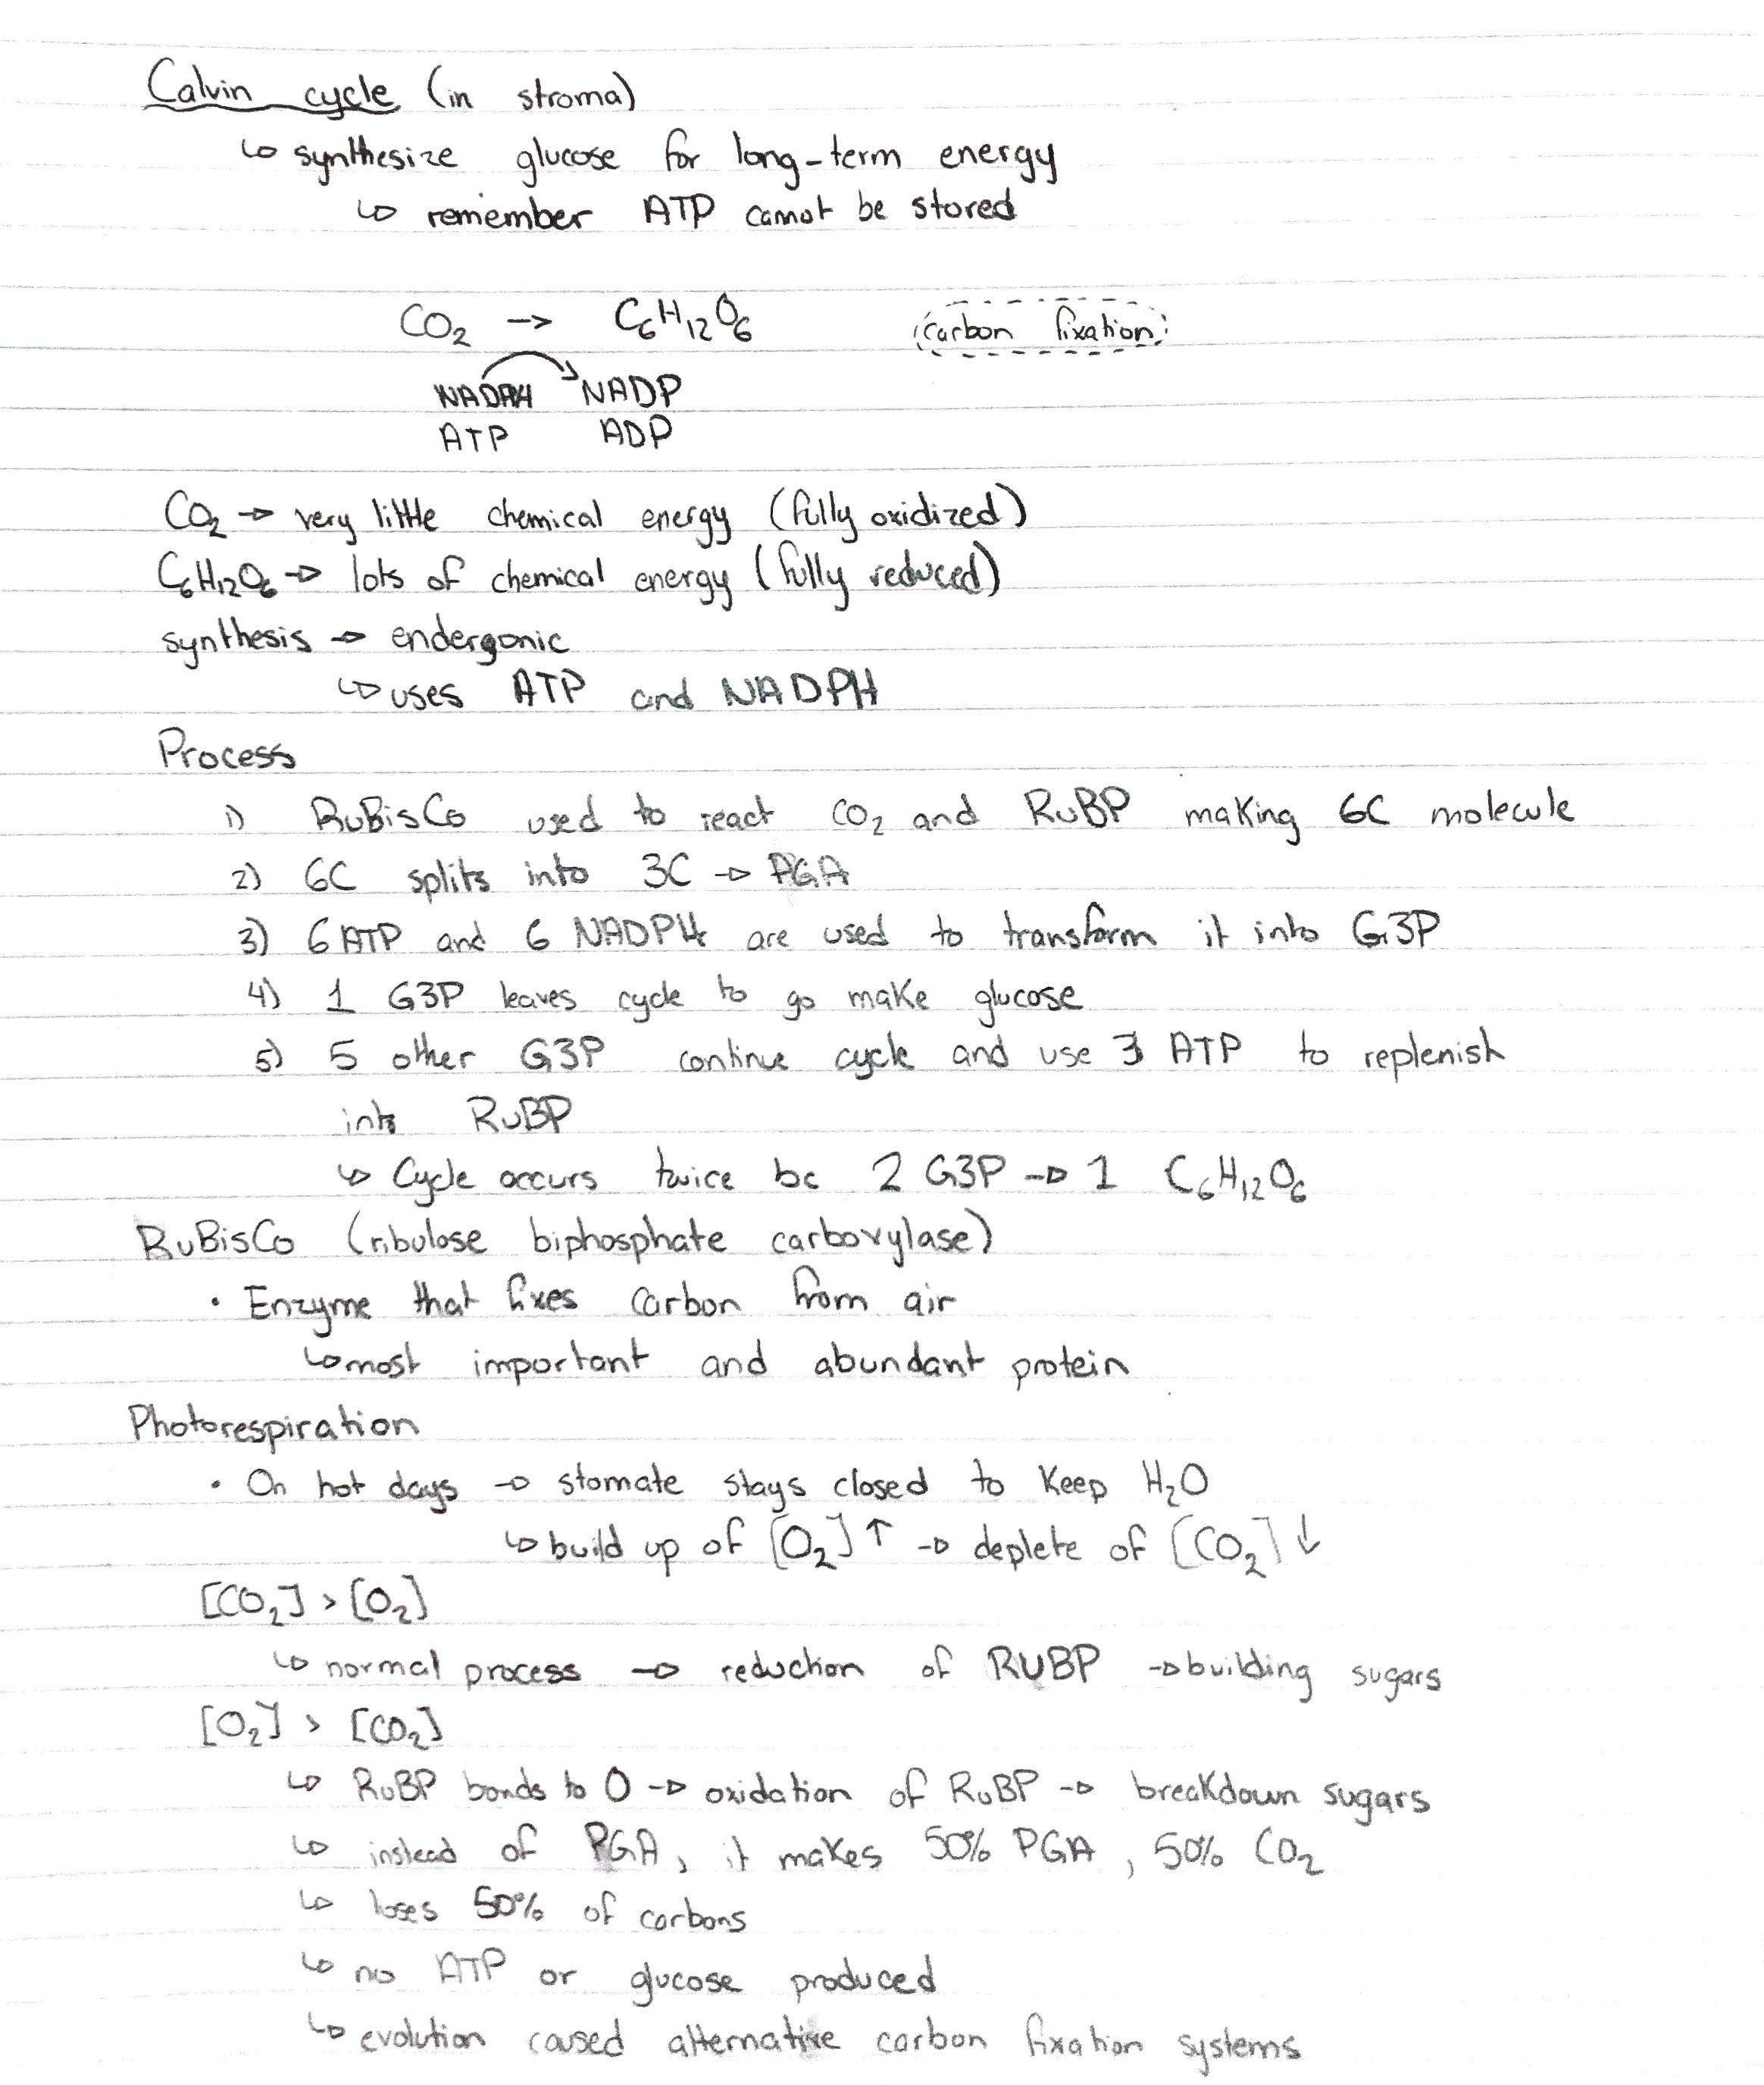 Calvin cycle (in stroma)
↳ synthesize glucose for long-term energy
↳ remember ATP cannot be stored
CO₂ → C₆H₁₂O₆ carbon fixation
NADPH NADP
ATP ADP
CO₂ → very little chemical energy (fully oxidized)
C₆H₁₂O₆ → lots of chemical energy (fully reduced)
synthesis → endergonic
↳ uses ATP and NADPH
Process
1) RuBisCo used to react CO₂ and RuBP making 6C molecule
2) 6C splits into 3C → PGA
3) 6 ATP and 6 NADPH are used to transform it into G3P
4) 1 G3P leaves cycle to go make glucose
5) 5 other G3P continue cycle and use 3 ATP to replenish
into RuBP
↳ Cycle occurs twice bc 2 G3P → 1 C₆H₁₂O₆
RuBisCo (ribulose biphosphate carboxylase)
• Enzyme that fixes carbon from air
↳ most important and abundant protein
Photorespiration
• On hot days → stomate stays closed to keep H₂O
↳ build up of [O₂] ↑ → deplete of [CO₂] ↓
[CO₂] > [O₂]
↳ normal process → reduction of RUBP → building sugars
[O₂] > [CO₂]
↳ RuBP bonds to O → oxidation of RuBP → breakdown sugars
↳ instead of PGA, it makes 50% PGA, 50% CO₂
↳ loses 50% of carbons
↳ no ATP or glucose produced
↳ evolution caused alternative carbon fixation systems